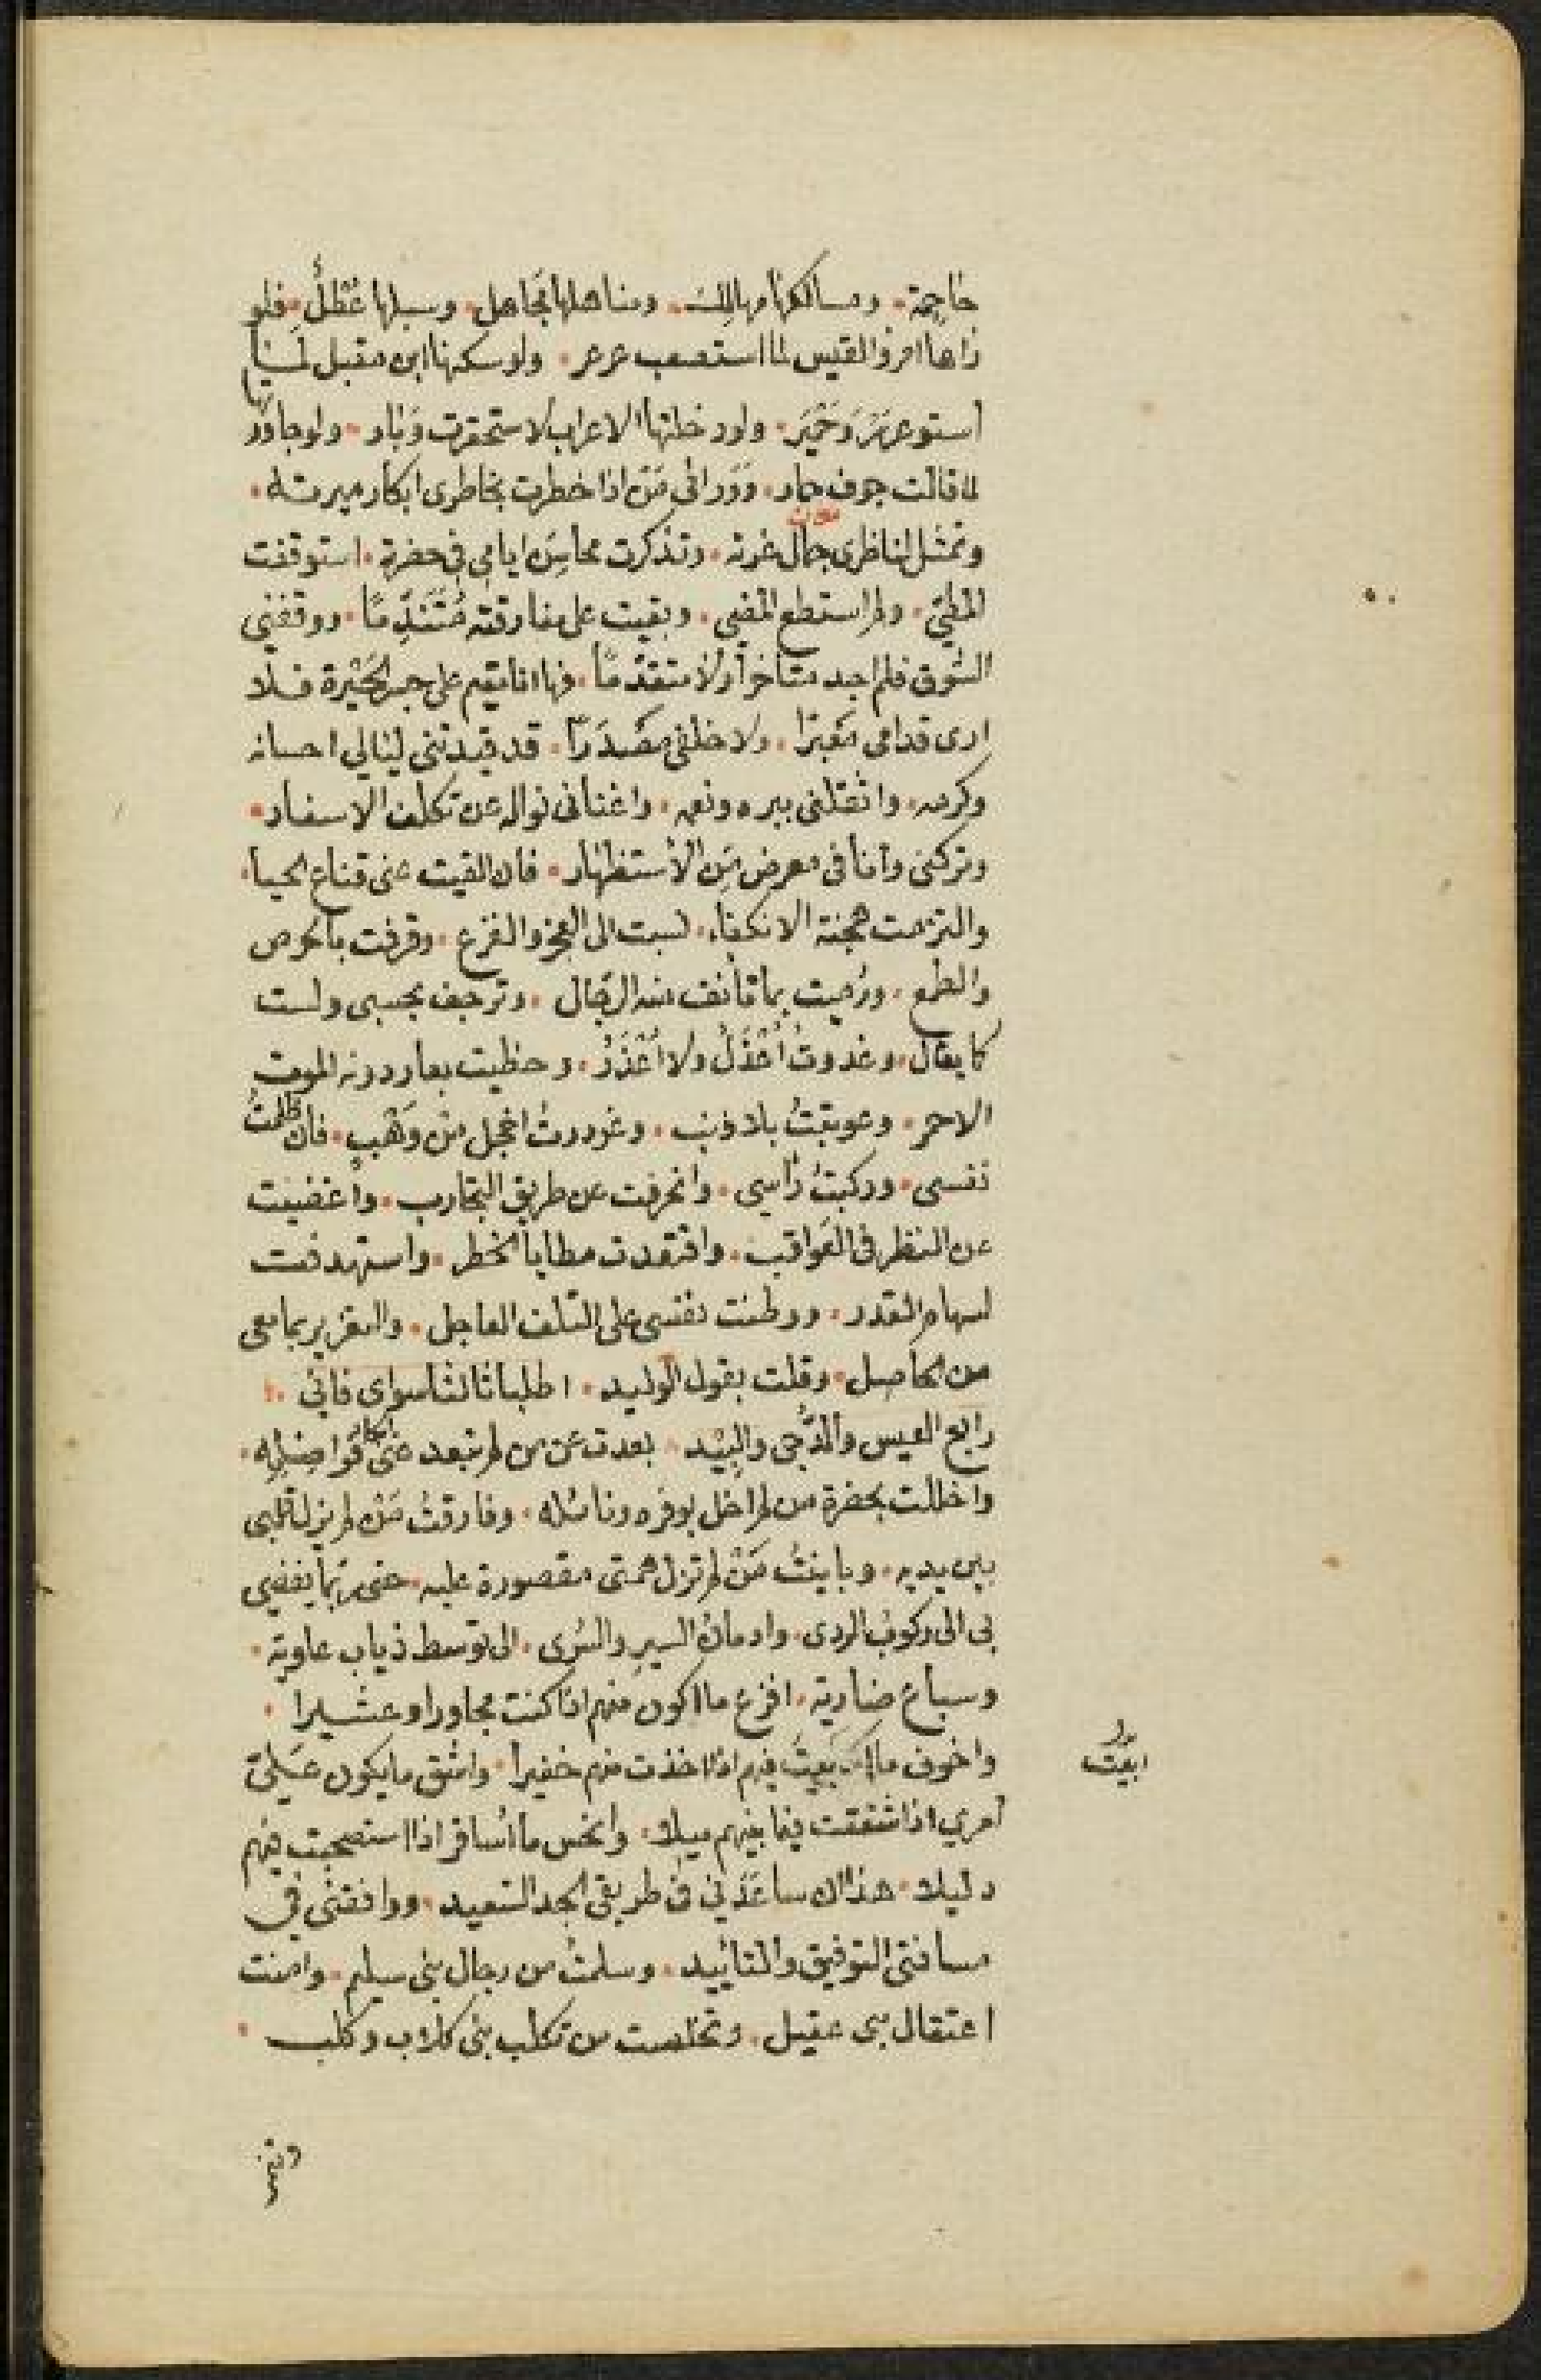 ومسالكها مهالك ومناهلها مجاهل وسبلها عطل فلو
راها امرؤ القيس لما استصعب عرعر ولو سكنها ابن مقبل لما
ولو دخلتها الاعراب لاستحقرت وبار ولو جاورتها
لما قالت جوف حمار وورائي من اذا خطرت بخاطري ابكار ميرته
وتمثل لناظري جمال غرته وتذكرت محاسن ايامي في حضرته استوقفت
المطي ولم استطع المضي وبقيت على مفارقته مُتَنَدِّمًا ووقفني
الشوق فلم اجد متاخرا ولا متقدمًا فها انا مقيم على جسر الحَيْرة فلا
ارى قدامي معبرًا ولا خلفي مَصْدَرًا قد قيدتني ليالي احسانه
وكرمه واثقلني ببره ونعمه واغناني نواله عن تكلف الاسفار
وتركني وانا في معرض من الاستظهار فان القيت عني قناع الحيا
والتزمت هجنة الانكفاء نسبت الى العجز والفزع وقرفت بالحرص
والطمع ورميت بما تانف منه الرجال وترجف بجسمي ولست
كما يقال وغدوتُ اُعْذَلُ ولا اُعْذَرُ وحظيت بعار دونه الموت
الاحمر وعوتبتُ بلا ذنب وغودرتُ اخجل من وَهْب فان ظلمتُ
نفسي وركبتُ راسي وانحرفت عن طريق التجارب واغضيت
عن النظر في العواقب واقتعدت مطايا الخطر واستهدفت
لسهام القدر ووطنت نفسي على التلف العاجل والتغرير بما معي
من الحاصل وقلت بقول الوليد اطلبا ثالثا سواي فاني
رابع العيس والدُّجى والبِيْد بعدت عن من لم تبعد عني فواضله
واخللت بحضرة من لم اخل بوفره ونائله وفارقتُ مَنْ لم يزل قلبي
بين يديه وباينتُ مَنْ لم تزل همتي مقصورة عليه حتى ربما يفضي
بي الى ركوب الردى وادمان السير والسرى الى توسط ذياب عاوية
وسباع ضارية افزع ما اكون منهم اذا كنت مجاورا وعشيرا
واخوف ما ابيت فيهم اذا اخذت منهم خفيرا واشق ما يكون عَلَيَّ
امري اذا شققت فيما بينهم سبيلا وانحس ما اسافر اذا استصحبت منهم
دليلا هذا ان ساعدني في طريقي الجد السعيد ووافقني في
مسافتي التوفيق والتاييد وسلمتُ من رجال بني سليم وامنت
اعتقال بني عقيل وتخلصت من تكلب بني كلاب وكلب
ابيت